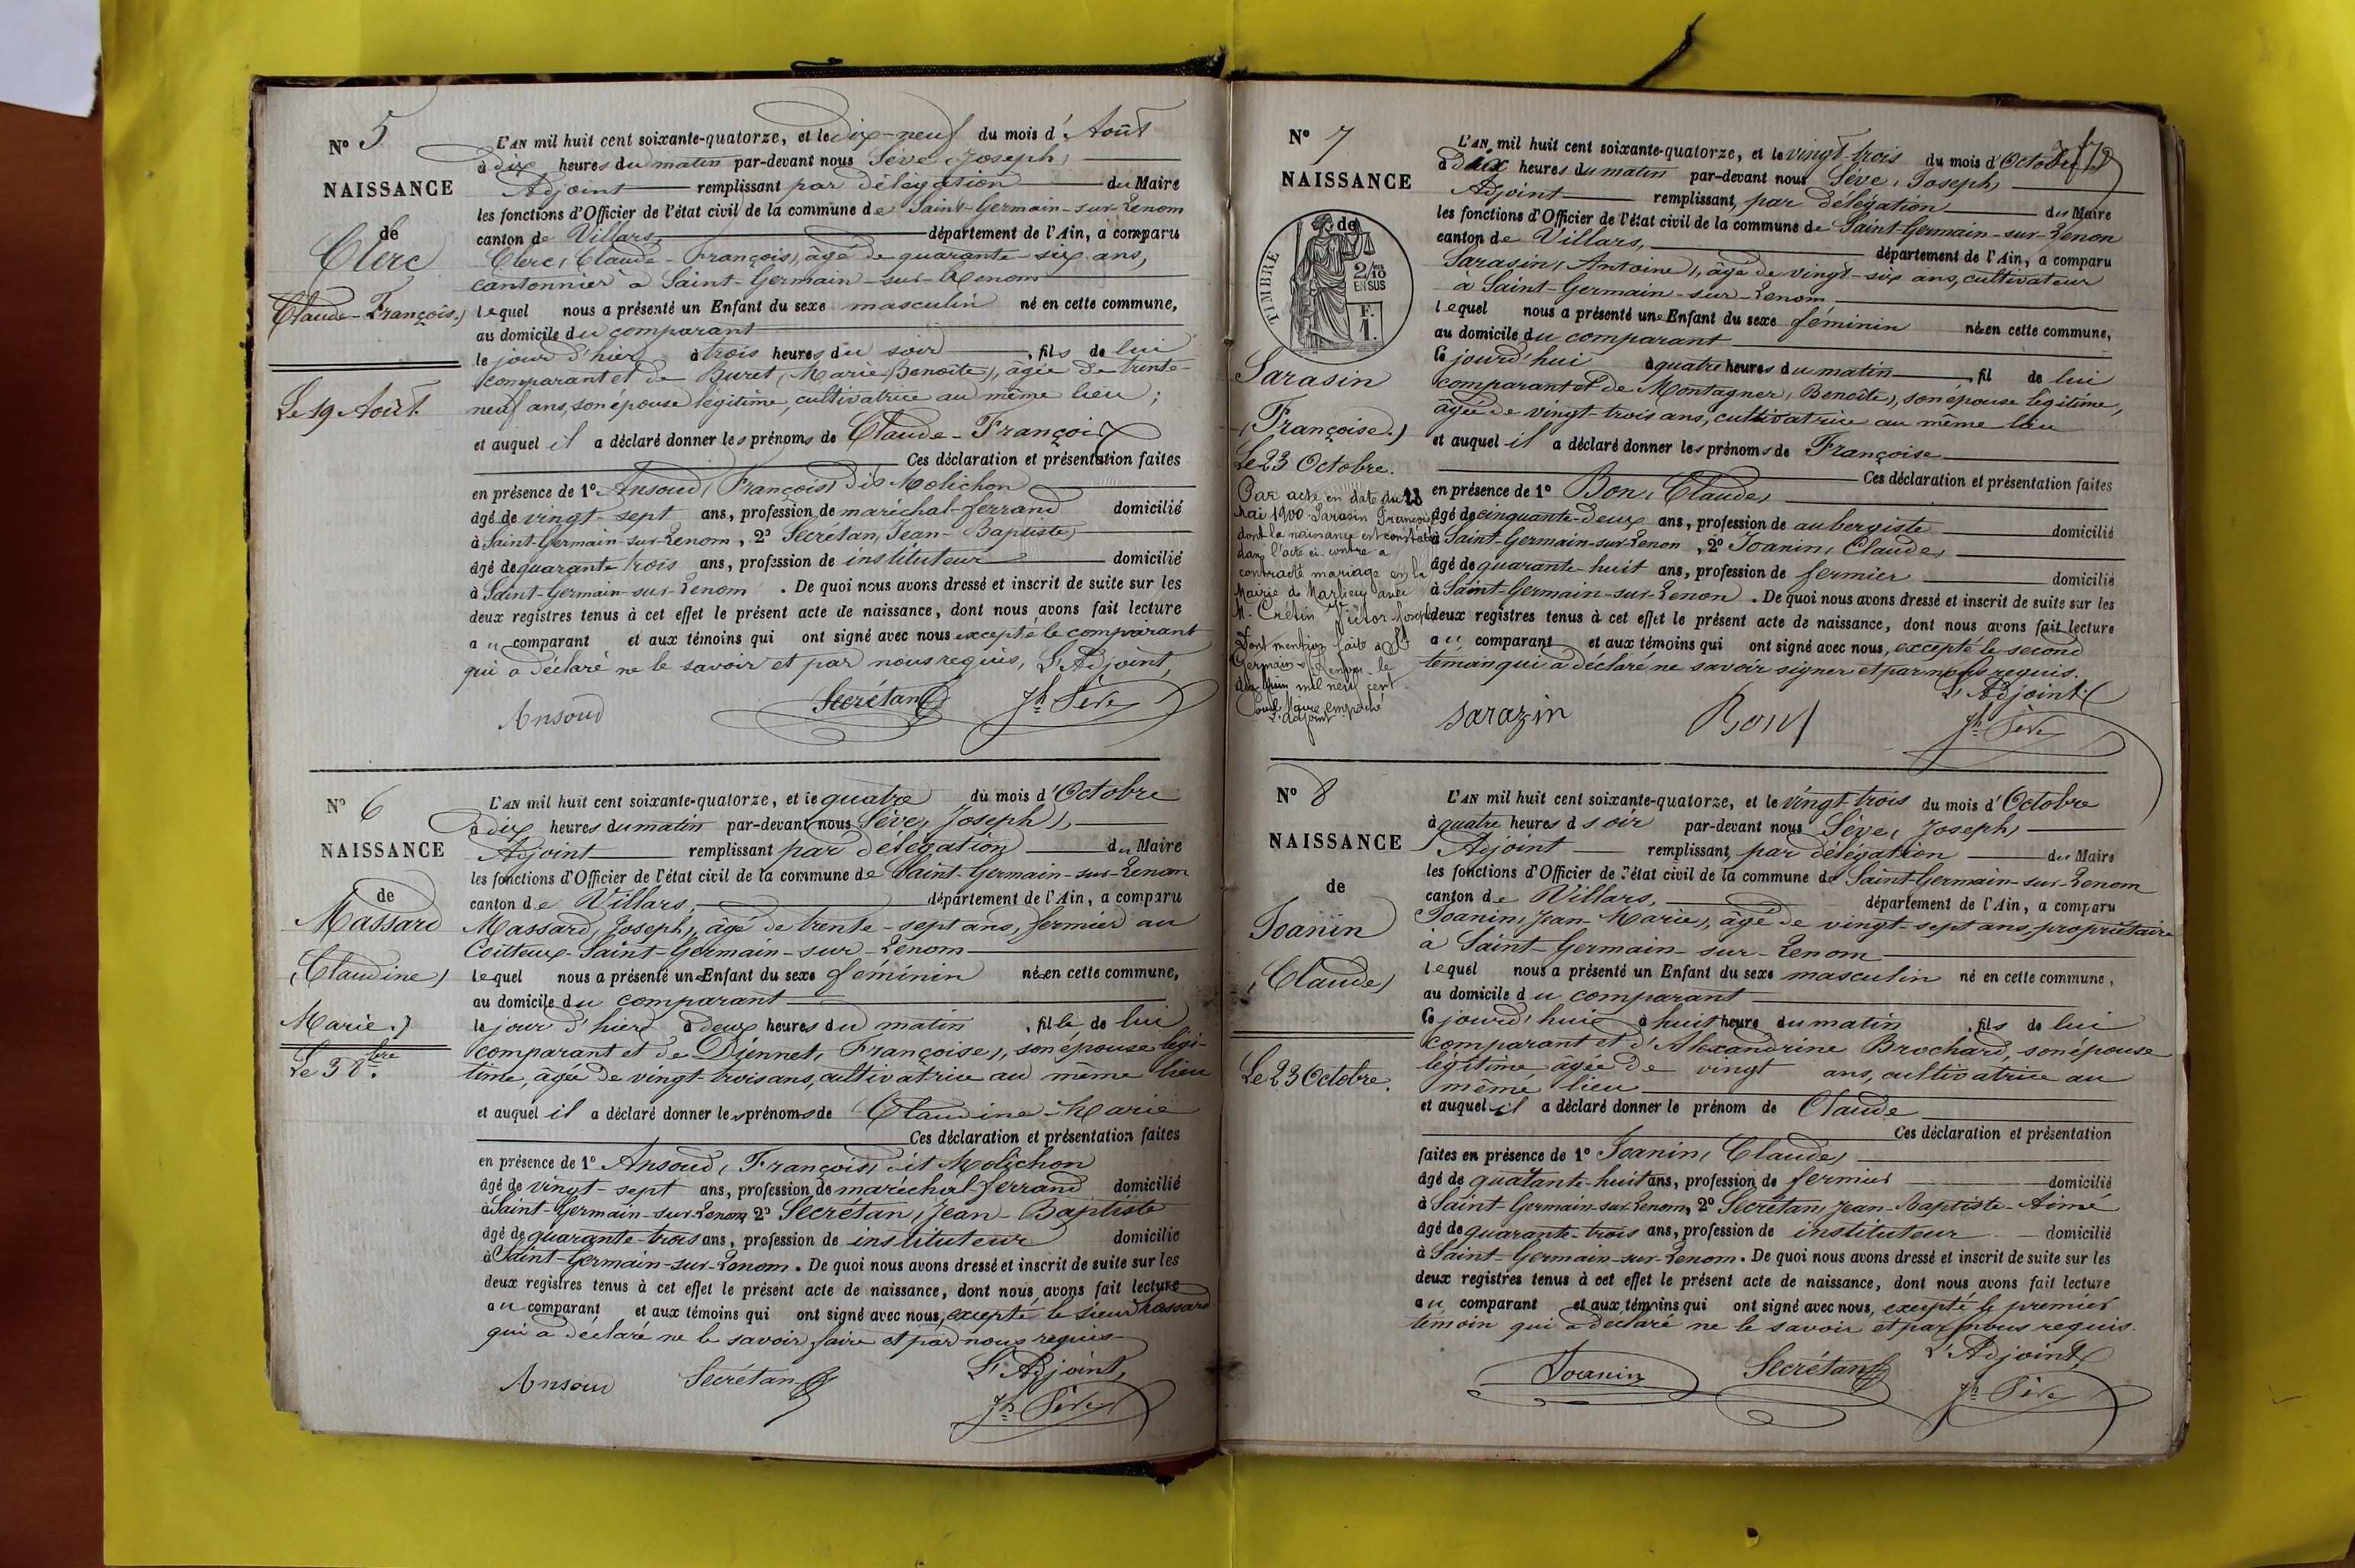 N° 5
NAISSANCE
de
Clerc
(Claude-François.)
Le 19 Août
L'AN mil huit cent soixante-quatorze, et le dix-neuf du mois d'Août
à dix heures du matin par-devant nous Sève (Joseph)
Adjoint remplissant par délégation du Maire
les fonctions d'Officier de l'état civil de la commune de Saint-Germain-sur-Renom
canton de Villars, département de l'Ain, a comparu
Clerc (Claude-François), âgé de quarante-six ans,
cantonnier à Saint-Germain-sur-Renom
lequel nous a présenté un Enfant du sexe masculin né en cette commune,
au domicile du comparant
le jour d'hier à trois heures du soir, fils de lui
comparant et de Buret (Marie-Benoîte), âgée de trente-
neuf ans, son épouse légitime, cultivatrice au même lieu ;
et auquel il a déclaré donner les prénoms de Claude-François
Ces déclaration et présentation faites
en présence de 1° Ansoud (François) dit Molichon
âgé de vingt-sept ans, profession de maréchal-ferrand domicilié
à Saint-Germain-sur-Renom, 2° Secrétan, Jean-Baptiste
âgé de quarante trois ans, profession de instituteur domicilié
à Saint-Germain-sur-Renom. De quoi nous avons dressé et inscrit de suite sur les
deux registres tenus à cet effet le présent acte de naissance, dont nous avons fait lecture
au comparant et aux témoins qui ont signé avec nous excepté le comparant
qui a déclaré ne le savoir et par nous requis, L'Adjoint,
Ansoud Secrétan Jh Sève
N° 6
NAISSANCE
de
Massard
(Claudine)
Marie.)
Le 3 8bre.
L'AN mil huit cent soixante-quatorze, et le quatre du mois d'Octobre
à dix heures du matin par-devant nous Sève, Joseph),
Adjoint remplissant par délégation du Maire
les fonctions d'Officier de l'état civil de la commune de Saint-Germain-sur-Renom
canton de Villars, département de l'Ain, a comparu
Massard, Joseph), âgé de trente-sept ans, fermier au
Coilteux Saint-Germain-sur-Renom
lequel nous a présenté une Enfant du sexe féminin née en cette commune,
au domicile du comparant
le jour d'hier à deux heures du matin, fille de lui
comparant et de Diennet, Françoise), son épouse légi-
time, âgée de vingt-trois ans, cultivatrice au même lieu
et auquel il a déclaré donner les prénoms de Claudine-Marie
Ces déclaration et présentation faites
en présence de 1° Ansoud (François) dit Molichon
âgé de vingt-sept ans, profession de maréchal-ferrand domicilié
à Saint-Germain-sur-Renom, 2° Secrétan, Jean-Baptiste
âgé de quarante-trois ans, profession de instituteur domicilié
à Saint-Germain-sur-Renom. De quoi nous avons dressé et inscrit de suite sur les
deux registres tenus à cet effet le présent acte de naissance, dont nous avons fait lecture
au comparant et aux témoins qui ont signé avec nous, excepté le sieur Massard
qui a déclaré ne le savoir faire et par nous requis
L'Adjoint,
Ansoud Secrétan Jh Sève
N° 7
NAISSANCE
de
TIMBRE
2/10
EN SUS
F.
1.
Sarasin
(Françoise.)
Le 23 Octobre.
Par acte en date du 28
Mai 1900 Sarasin Françoise
dont la naissance est constatée
dans l'acte ci-contre a
contracté mariage en la
Mairie de Marlieux avec
M. Crétin Victor Joseph
Dont mention faite à St
Germain s/ Renom le
juin mil neuf cent
Pour le Maire empêché
L'adjoint
L'AN mil huit cent soixante-quatorze, et le vingt-trois du mois d'Octobre
à dix heures du matin par-devant nous Sève, Joseph)
Adjoint remplissant, par délégation du Maire
les fonctions d'Officier de l'état civil de la commune de Saint-Germain-sur-Renon
canton de Villars, département de l'Ain, a comparu
Sarasin (Antoine), âgé de vingt-six ans, cultivateur
à Saint-Germain-sur-Renom
lequel nous a présenté une Enfant du sexe féminin née en cette commune,
au domicile du comparant
ce jourd'hui à quatre heures du matin, fil de lui
comparant et de Montagner (Benoîte), son épouse légitime,
âgée de vingt-trois ans, cultivatrice au même lieu
et auquel il a déclaré donner les prénoms de Françoise
Ces déclaration et présentation faites
en présence de 1° Bon (Claude)
âgé de cinquante-deux ans, profession de aubergiste domicilié
à Saint-Germain-sur-Renon, 2° Joanin (Claude)
âgé de quarante-huit ans, profession de fermier domicilié
à Saint-Germain-sur-Renon. De quoi nous avons dressé et inscrit de suite sur les
deux registres tenus à cet effet le présent acte de naissance, dont nous avons fait lecture
au comparant et aux témoins qui ont signé avec nous, excepté le second
témoin qui a déclaré ne savoir signer et par nous requis.
L'Adjoint
sarazin Bon Jh Sève
N° 8
NAISSANCE
de
Joanin
(Claude)
Le 23 Octobre.
L'AN mil huit cent soixante-quatorze, et le vingt-trois du mois d'Octobre
à quatre heures d soir par-devant nous Sève, Joseph)
Adjoint remplissant, par délégation du Maire
les fonctions d'Officier de l'état civil de la commune de Saint-Germain-sur-Renom
canton de Villars, département de l'Ain, a comparu
Joanin, Jean-Marie), âgé de vingt-sept ans, propriétaire
à Saint-Germain-sur-Renom
lequel nous a présenté un Enfant du sexe masculin né en cette commune,
au domicile du comparant
ce jourd'hui à huit heure du matin, fils de lui
comparant et d'Alexandrine Brochard, son épouse
légitime, âgée de vingt ans, cultivatrice au
même lieu
et auquel il a déclaré donner le prénom de Claude
Ces déclaration et présentation
faites en présence de 1° Joanin (Claude)
âgé de quatante-huit ans, profession de fermier domicilié
à Saint-Germain-sur-Renom, 2° Secrétan, Jean-Baptiste-Aimé
âgé de quarante-trois ans, profession de instituteur domicilié
à Saint-Germain-sur-Renom. De quoi nous avons dressé et inscrit de suite sur les
deux registres tenus à cet effet le présent acte de naissance, dont nous avons fait lecture
au comparant et aux témoins qui ont signé avec nous, excepté le premier
témoin qui a déclaré ne le savoir et par nous requis.
L'Adjoint
Joanin Secrétan Jh Sève